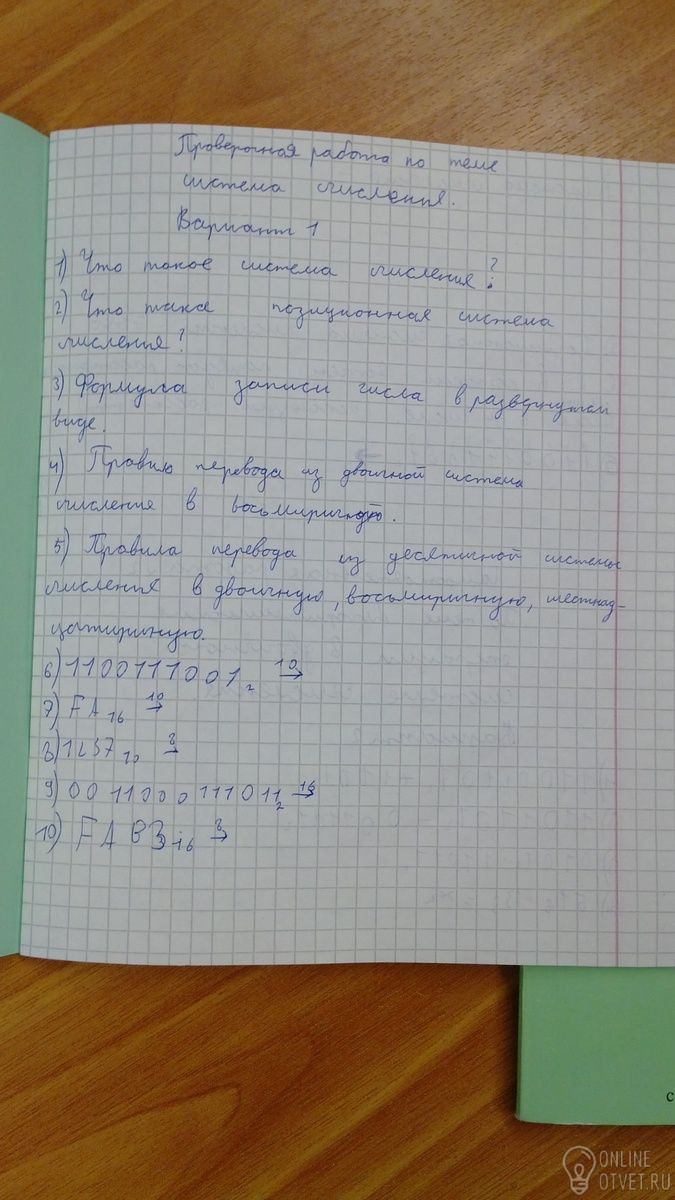 Проверочная работа по теме
система счисления.
Вариант 1
1) Что такое система числения?
2) Что такае позиционная система
числения?
3) Формула записи числа в развернутом
виде.
4) Правило перевода из двоичной система
числения в восьмиричную.
5) Правила перевода из десятичной системы
числения в двоичную, восьмиричную, шестнад-
цатиричную.
6) 1100111001₂ →10
7) FA₁₆ →10
8) 1237₁₀ →8
9) 0011000111011₂ →16
10) FAB3₁₆ →
ONLINE
OTVET.RU
с